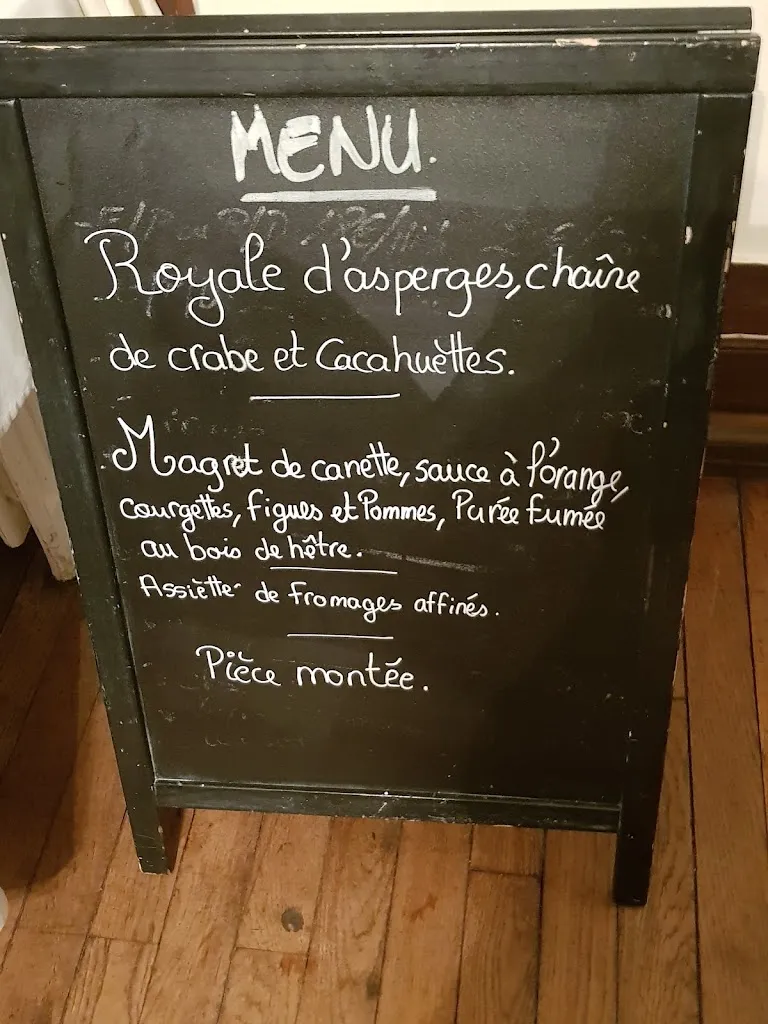 MENU.
Royale d'asperges, chaîre
de crabe et Cacahuèttes.
Magret de canette, sauce à l'orange,
courgettes, figues et Pommes, Purée fumée
au bois de hêtre.
Assiètte de fromages affinés.
Pièce montée.